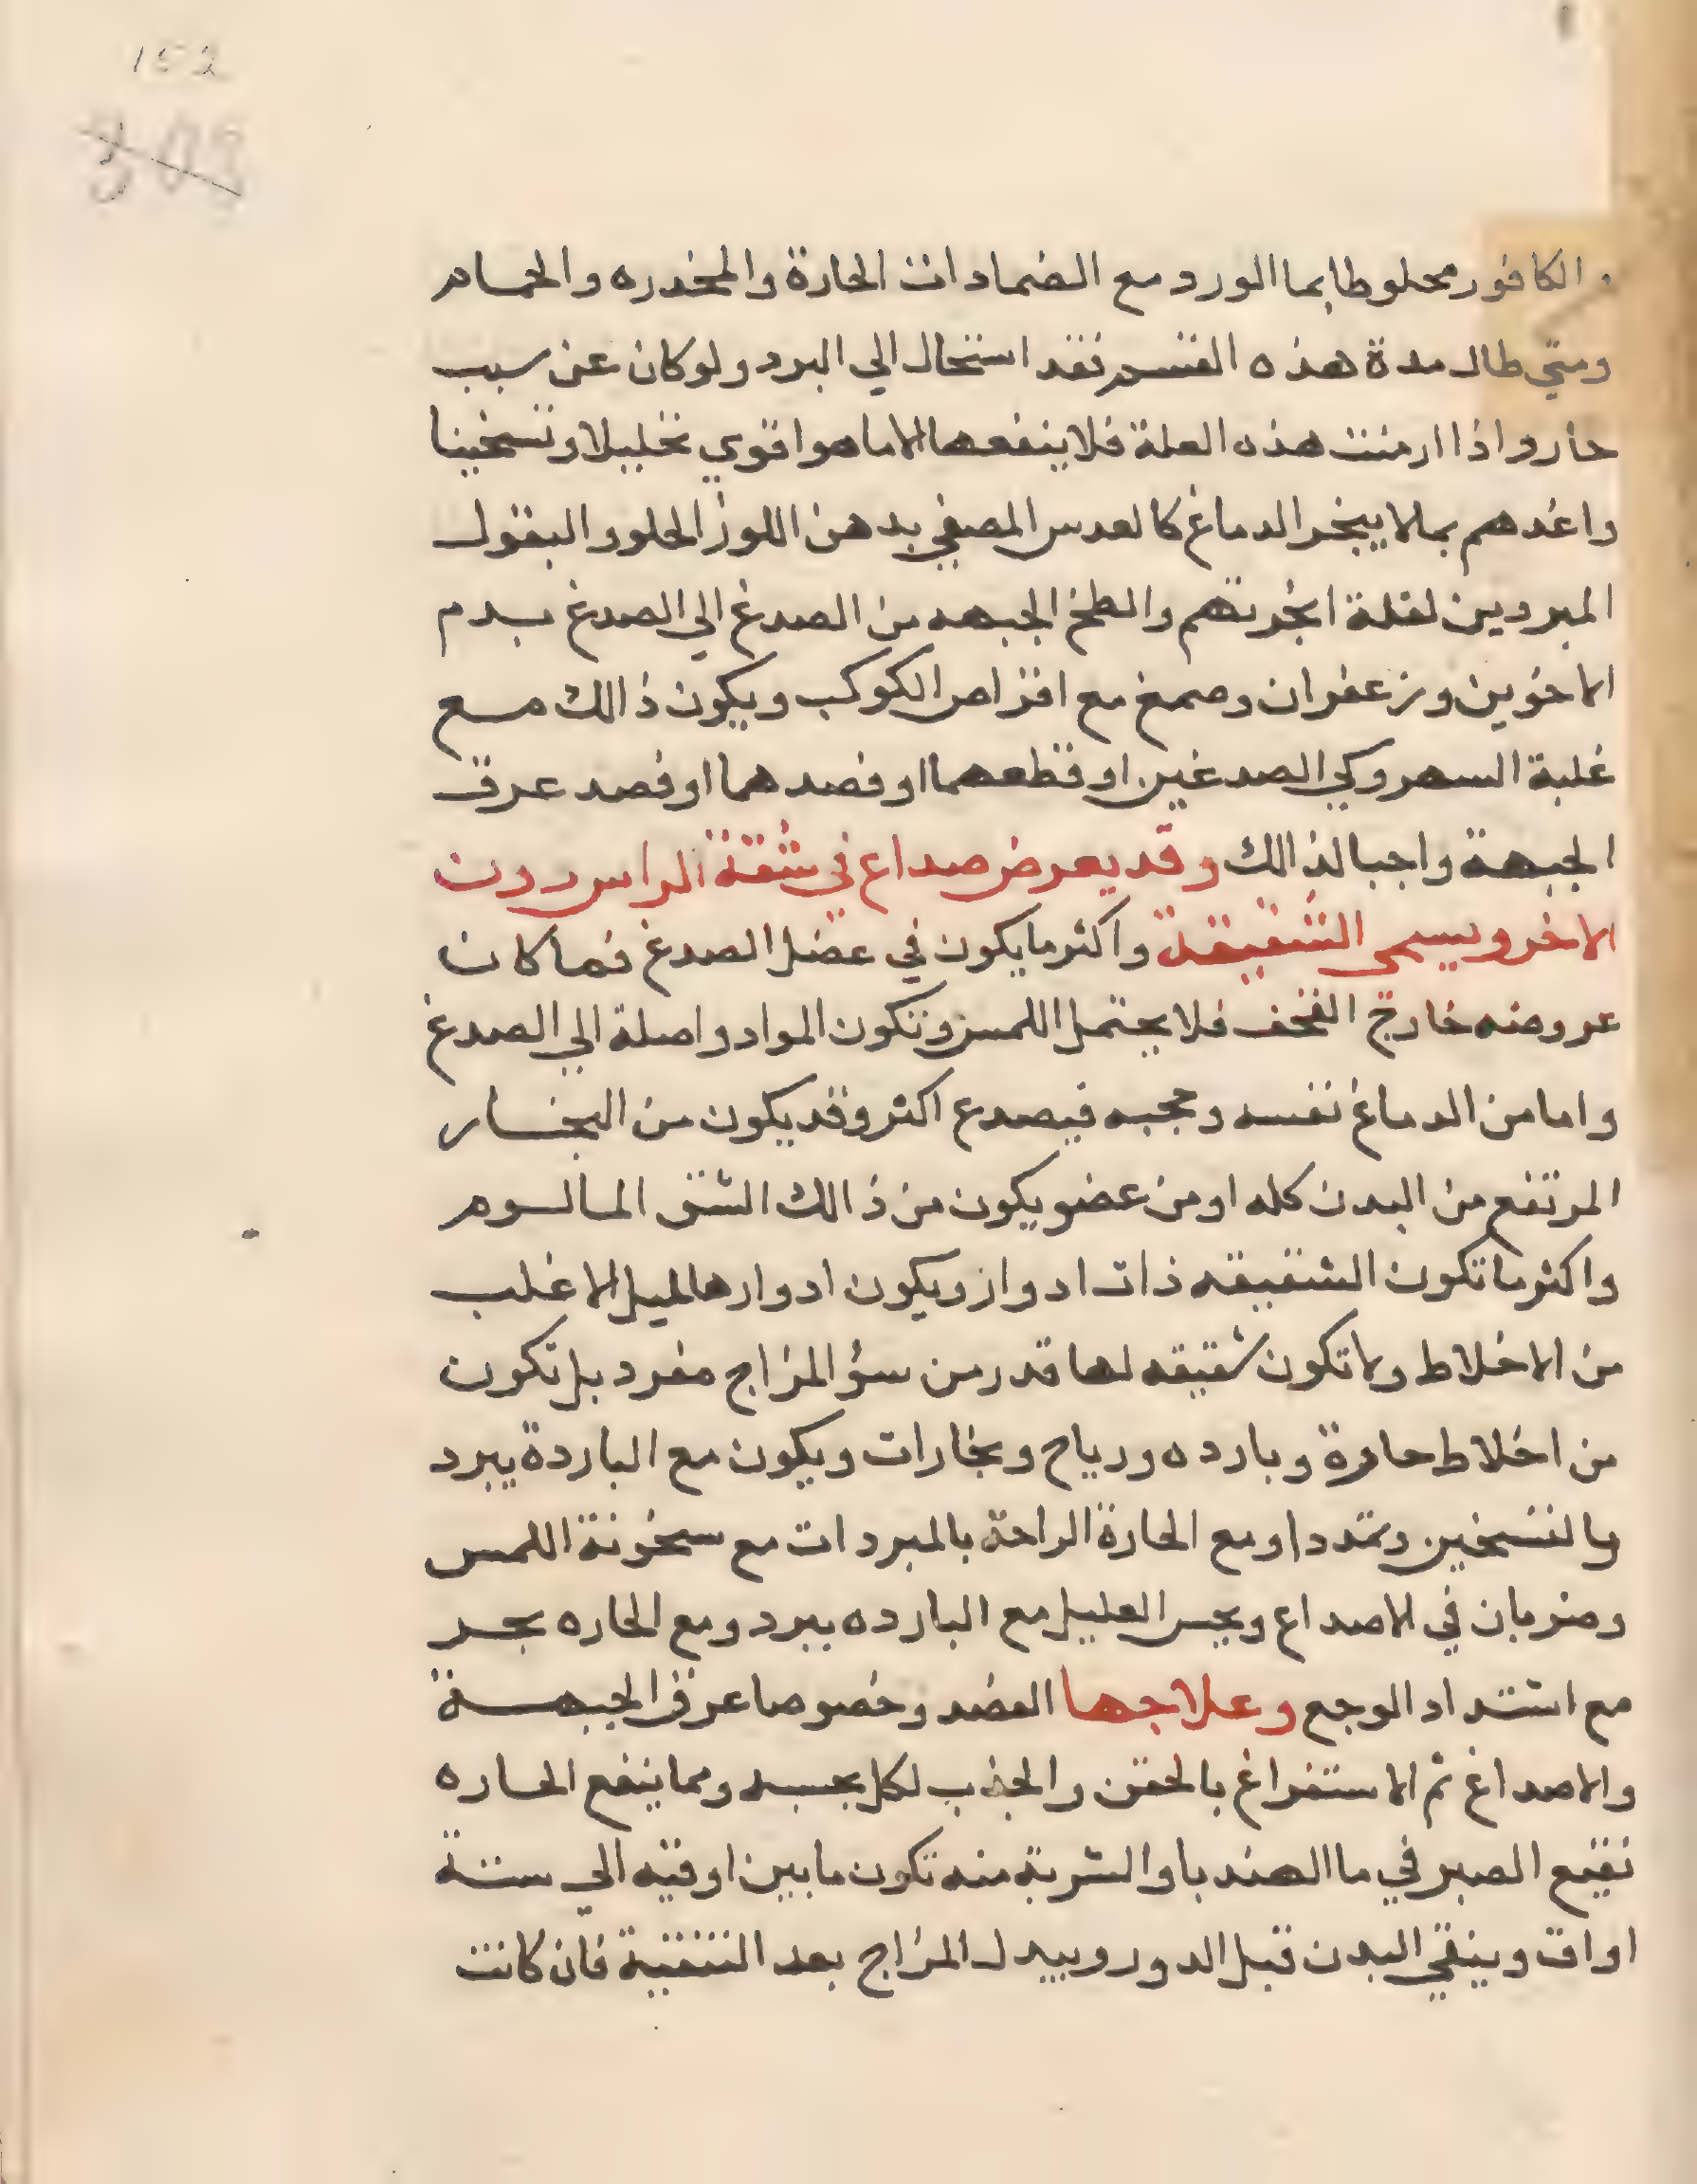 152
308
الكافور محلوطا بما الورد مع الضمادات الحارة والمخدره والحمام
ومتي طال مدة هذه القسم فقد استحال الي البرد ولو كان عن سبب
حار واذا ازمنت هذه العلة فلا ينفعها الا ما هو اقوي تحليلا وتسخينا
واغدهم بما لا يبخر الدماغ كالعدس المصفي بدهن اللوز الحلو والبقول
المبردين لقلة ابخرتهم والطخ الجبهه من الصدغ الي الصدغ بدم
الاخوين وزعفران وصمغ مع اقراص الكوكب ويكون ذالك مع
غلبة السهر وكي الصدغين او قطعهما او فصدهما او فصد عرق
الجبهة واجبا لذالك وقد يعرض صداع في شقة الراس دون
الاخر ويسمى الشقيقة واكثر ما يكون في عضل الصدغ فما كان
عروضه خارج القحف فلا يحتمل اللمس وتكون المواد واصلة الي الصدغ
واما من الدماغ نفسه وحجبه فيصدع اكثر وقد يكون من البخار
المرتفع من البدن كله او من عضو يكون من ذالك الشق المالوم
واكثر ما تكون الشقيقه ذات ادوار ويكون ادوارها لميل الاغلب
من الاخلاط ولا تكون شقيقه لها قدر من سؤ المزاج مفرد بل تكون
من اخلاط حارة وبارده ورياح وبخارات ويكون مع الباردة يبرد
بالتسخين وتمددا ومع الحارة الراحة بالمبردات مع سخونة اللمس
وضربان في الاصداع ويحس العليل مع البارده ببرد ومع الحاره بحر
مع اشتداد الوجع وعلاجها الفصد وخصوصا عرق الجبهة
والاصداغ ثم الاستفراغ بالحقن والجذب لكل بحسبه ومما ينفع الحاره
نقيع الصبر في ما الهندبا والشربة منه تكون ما بين اوقيه الي ستة
اواق وينقي البدن قبل الدور ويبدل المزاج بعد التنقية فان كانت